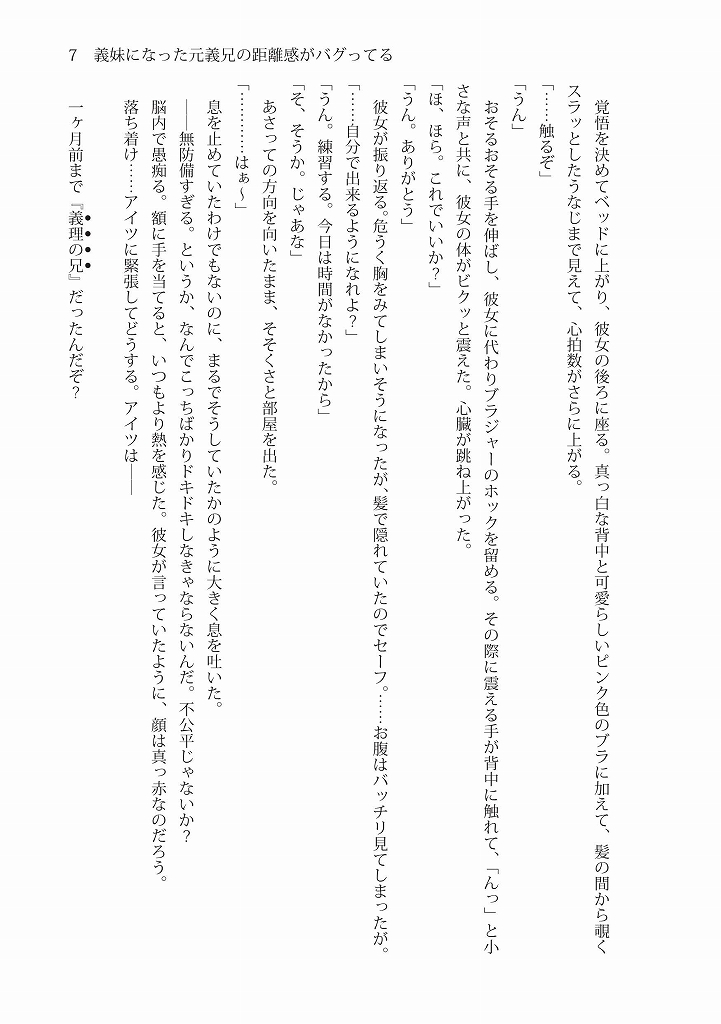 7　義妹になった元義兄の距離感がバグってる
　覚悟を決めてベッドに上がり、彼女の後ろに座る。真っ白な背中と可愛らしいピンク色のブラに加えて、髪の間から覗く
スラッとしたうなじまで見えて、心拍数がさらに上がる。
「……触るぞ」
「うん」
　おそるおそる手を伸ばし、彼女に代わりブラジャーのホックを留める。その際に震える手が背中に触れて、「んっ」と小
さな声と共に、彼女の体がビクッと震えた。心臓が跳ね上がった。
「ほ、ほら。これでいいか？」
「うん。ありがとう」
　彼女が振り返る。危うく胸をみてしまいそうになったが、髪で隠れていたのでセーフ。……お腹はバッチリ見てしまったが。
「……自分で出来るようになれよ？」
「うん。練習する。今日は時間がなかったから」
「そ、そうか。じゃあな」
　あさっての方向を向いたまま、そそくさと部屋を出た。
「…………はぁ～」
　息を止めていたわけでもないのに、まるでそうしていたかのように大きく息を吐いた。
　――無防備すぎる。というか、なんでこっちばかりドキドキしなきゃならないんだ。不公平じゃないか？
　脳内で愚痴る。額に手を当てると、いつもより熱を感じた。彼女が言っていたように、顔は真っ赤なのだろう。
　落ち着け……アイツに緊張してどうする。アイツは――
　一ヶ月前まで『義理の兄』だったんだぞ？